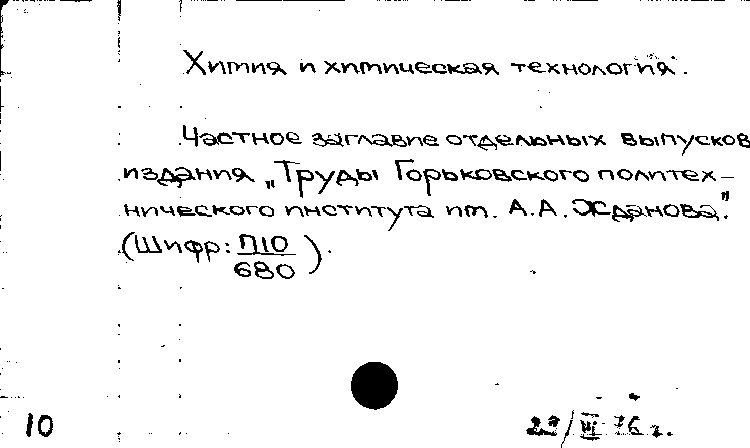 Химия и химическая технология.
Частное заглавие отдельных выпусков
издания „Труды Горьковского политех-
нического института им. А.А. Жданова."
(Шифр: П10
680 ).
10
29/III 76 г.